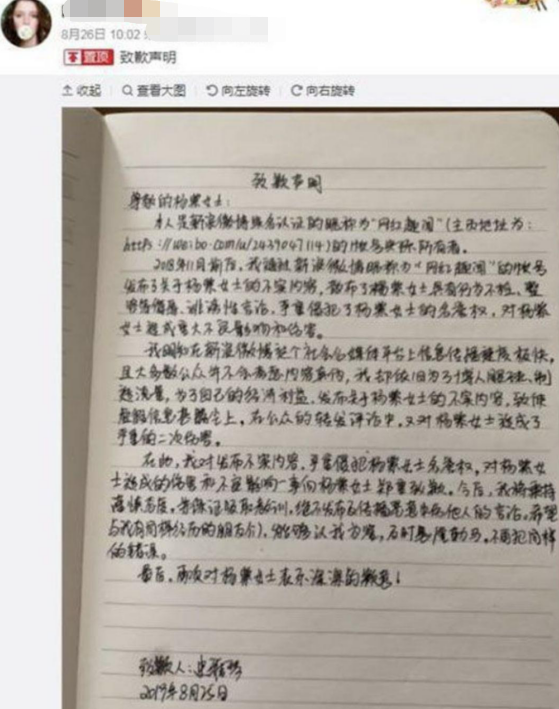 8月26日 10:02
置顶 致歉声明
收起 查看大图 向左旋转 向右旋转
致歉声明
尊敬的杨幂女士:
本人是新浪微博实名认证的昵称为“网红趣闻”(主页地址为:
https://weibo.com/u/2439047114)的账号实际所有者。
2018年11月前后,我通过新浪微博昵称为“网红趣闻”的账号
发布了关于杨幂女士的不实内容,散布了杨幂女士具有行为不检、整
等侮辱、诽谤性言论,严重侵犯了杨幂女士的名誉权,对杨幂
女士造成重大不良影响和伤害。
我明知在新浪微博这个社会化媒体平台上信息传播速度极快,
且大多数公众并不会清楚内容真伪,我却依旧为了博人眼球、制
造流量,为了自己的经济利益,发布关于杨幂女士的不实内容,致使
虚假信息甚嚣尘上,在公众的转发评论中,又对杨幂女士造成了
严重的二次伤害。
在此,我对发布不实内容,严重侵犯杨幂女士名誉权,对杨幂女
士造成的伤害和不良影响一事向杨幂女士郑重致歉。今后,我将秉持
谨慎态度,并保证吸取教训,绝不发布及传播恶意中伤他人的言论,希望
与我有同样经历的朋友们,能够以我为鉴,及时悬崖勒马,不再犯同样
的错误。
最后,再次对杨幂女士表示深深的歉意!
致歉人:史
2019年8月25日